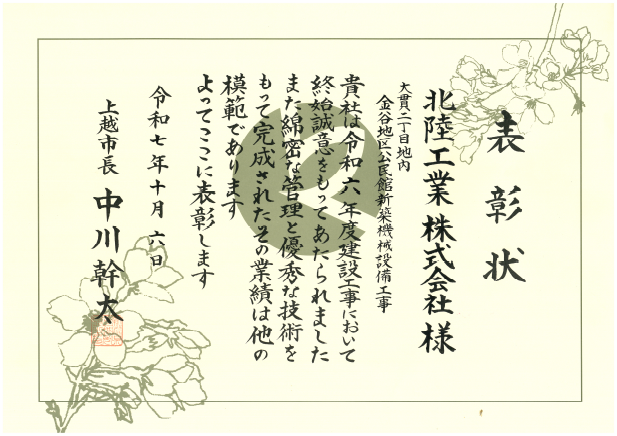 表彰状
北陸工業株式会社様
大貫二丁目地内
金谷地区公民館新築機械設備工事
貴社は令和六年度建設工事において
終始誠意をもってあたられました
また綿密な管理と優秀な技術を
もって完成されたその業績は他の
模範であります
よってここに表彰します
令和七年十月六日
上越市長 中川幹太